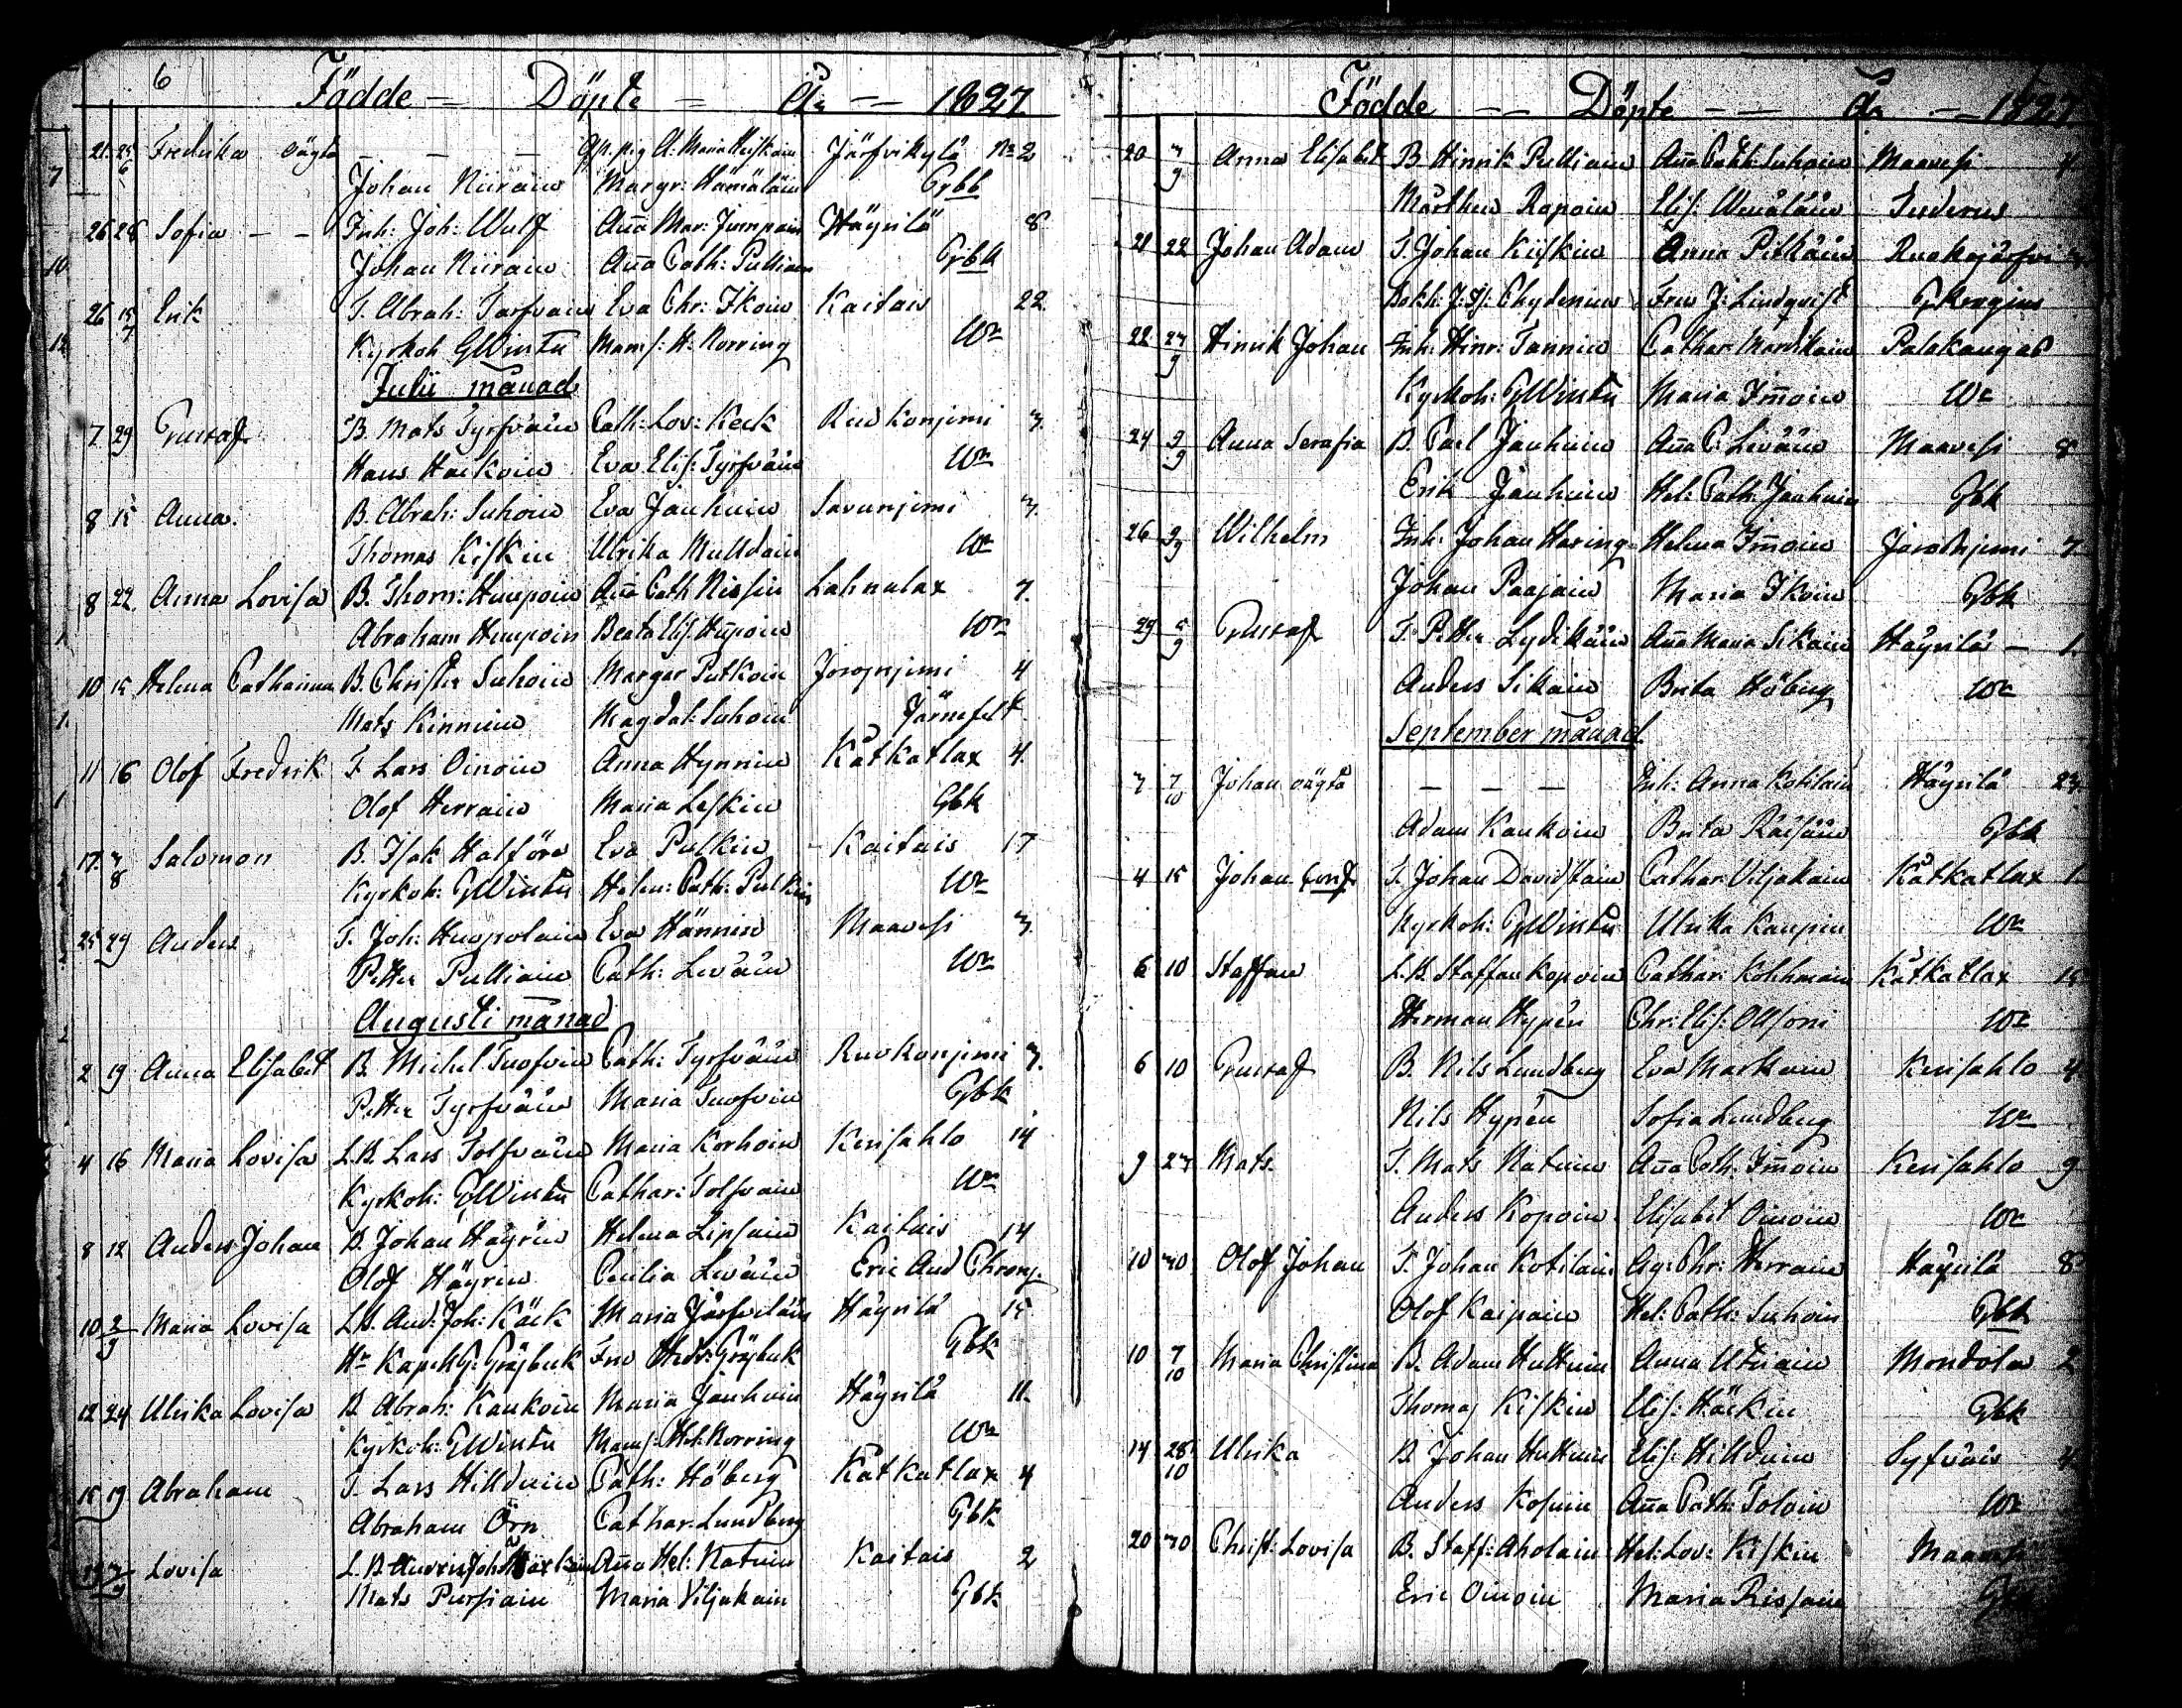 6
Födde — Döpte — År — 1827
21 25/6 Fredrika oägta — — Järfvikylä No 2
Johan Niirain Margr: Hämäläin Gbk
26 28 Sofia — — Inh: Joh: Wulf Aña Mar: Jumpain Häyrilä 8
Johan Niirain Aña Cath: Pulliain Gbk
26 15/7 Erik T. Abrah: Tarfvain Eva Chr: Ikoin Kaitais 22.
Kyrkoh GWinter Mams: H: Norring Wr
Julii månad
7 29 Gustaf B. Mats Tyrfväin Cath: Lov: Keck Ruokonjemi 3.
Hans Haikoin Eva Elis: Tyrfväin Wr
8 15 Anna. B. Abrah: Suhoin Eva Jauhiain Savunjemi 3.
Thomas Kiskin Ulrika Mulldain Wr
8 22. Anna Lovisa B. Thom: Himpoin Aña Cath Nissin Lahnalax 7.
Abraham Himpoin Beata Elis: Hiipoin Wr
10 15 Helena Catharina B. Christer Suhoin Margar Putkoin Joroinjemi 4
Mats Kinnuin Magdal: Suhoin Järnefelt.
11 16 Olof Fredrik T Lars Oinoin Anna Hynnin Kåtkatlax 4.
Olof Herrain Maria Leskin Gbk
17. 3/8 Salomon B. Isak Halförd Eva Pulkin Kaitais 17
Kyrkoh: GWinter Helen: Cath: Pulkin Wr
25 29 Anders T. Joh: Huopolain Eva Hännin Maavesi 3.
Petter Pulliain Cath: Leväin Wr
Augusti månad
2 19 Anna Elisabet B. Michel Tuofvin Cath: Tyrfväin Ruokonjemi 3.
Petter Tyrfväin Maria Tuofvin Gbk
4 16 Maria Lovisa L.B. Lars Tolfvain Maria Korhoin Kerisahlo 14
Kyrkoh: GWinter Cathar: Tolfvain Wr
8 12 Anders Johan B. Johan Häyrin Helena Lipsain Kaitais 14
Olof Häyrin Cecilia Leväin Eric And Chronj.
10 2/9 Maria Lovisa L.B. And: Joh: Käck Maria Järfveläin Häyrilä 15
Hr Kapell G: Gråsbeck Fru Hedv: Gråsbeck Gbk
12 24 Ulrika Lovisa B. Abrah: Kaukoin Maria Jauhiain Häyrilä 11.
Kyrkoh: GWinter Mams: Hel: Norring Wr
15 19 Abraham T. Lars Hilldain Cath: Höberg Kåtkatlax 4
Abraham Örn Cathar: Lundberg Gbk
Lovisa L.B. Anders Joh Aña Hel: Natuin Kaitais 2
Mats Pursiain Maria Viljakain Gbk
Födde — — Döpte — — År — 1827
20 3/9 Anna Elisabet B. Hinrik Pulliain Aña Cath: Suhoin Maavesi 4
Mårthen Ropoin Elis: Wenäläin Suderus
21 22 Johan Adam T. Johan Kiiskin Anna Pitkäin Ruokojärfvi 3
Bokh: J: Chydenius Fru J: Lindqvist
22 23/9 Hinrik Johan Inh: Hinr: Tannin Cathar: Mardikain Palokangas
Kyrkoh: GWinter Maria Imoin Wr
24 9/9 Anna Serafia B. Carl Jauhiain Aña C: Leväin Maavesi 8
Erik Jauhiain Hel: Cath: Jauhiain Gbk
26 9/9 Wilhelm Inh: Johan Haring Helena Imoin Joroinjemi 7
Johan Paajain Maria Ikoin Gbk
29 5/9 Gustaf T. Petter Lydikäin Aña Maria Sikain Häyrilä — 1.
Anders Sikain Brita Höberg Wr
September månad.
3 7/10 Johan oägta — — — Inh: Anna Kotilain Häyrilä 23
Adam Kaukoin Brita Räisäin Gbk
4 15 Johan T. Johan Davidstain Cathar: Viljakain Kåtkatlax 1
Kyrkoh: GWinter Ulrika Kaupin Wr
6 10 Staffan L.B. Staffan Kopoin Cathar: Kohhmain Kåtkatlax 15
Herman Hypén Chr: Elis: Olsoni Wr
6 10 Gustaf B. Nils Lundberg Eva Markain Kerisahlo 4
Nils Hypén Sofia Lundberg Wr
9 23 Mats T. Mats Natuin Aña Cath: Imoin Kerisahlo 9
Anders Kopoin Elisabet Oinoin Wr
10 30 Olof Johan T. Johan Kotilain Ag: Chr: Herrain Häyrilä 8
Olof Kaipain Hel: Cath: Suhoin Gbk
10 7/10 Maria Christina B. Adam Huttuin Anna Utriain Mondola 2
Thomas Kiskin Elis: Häikin Gbk
14 28/10 Ulrika B. Johan Huttuin Elis: Hilldain Syfväis 4
Anders Kosuin Aña Cath: Toloin Wr
20 30 Christ: Lovisa B. Staff: Aholain Hel: Lov: Kiskin Maavesi
Eric Oinoin Maria Rissain